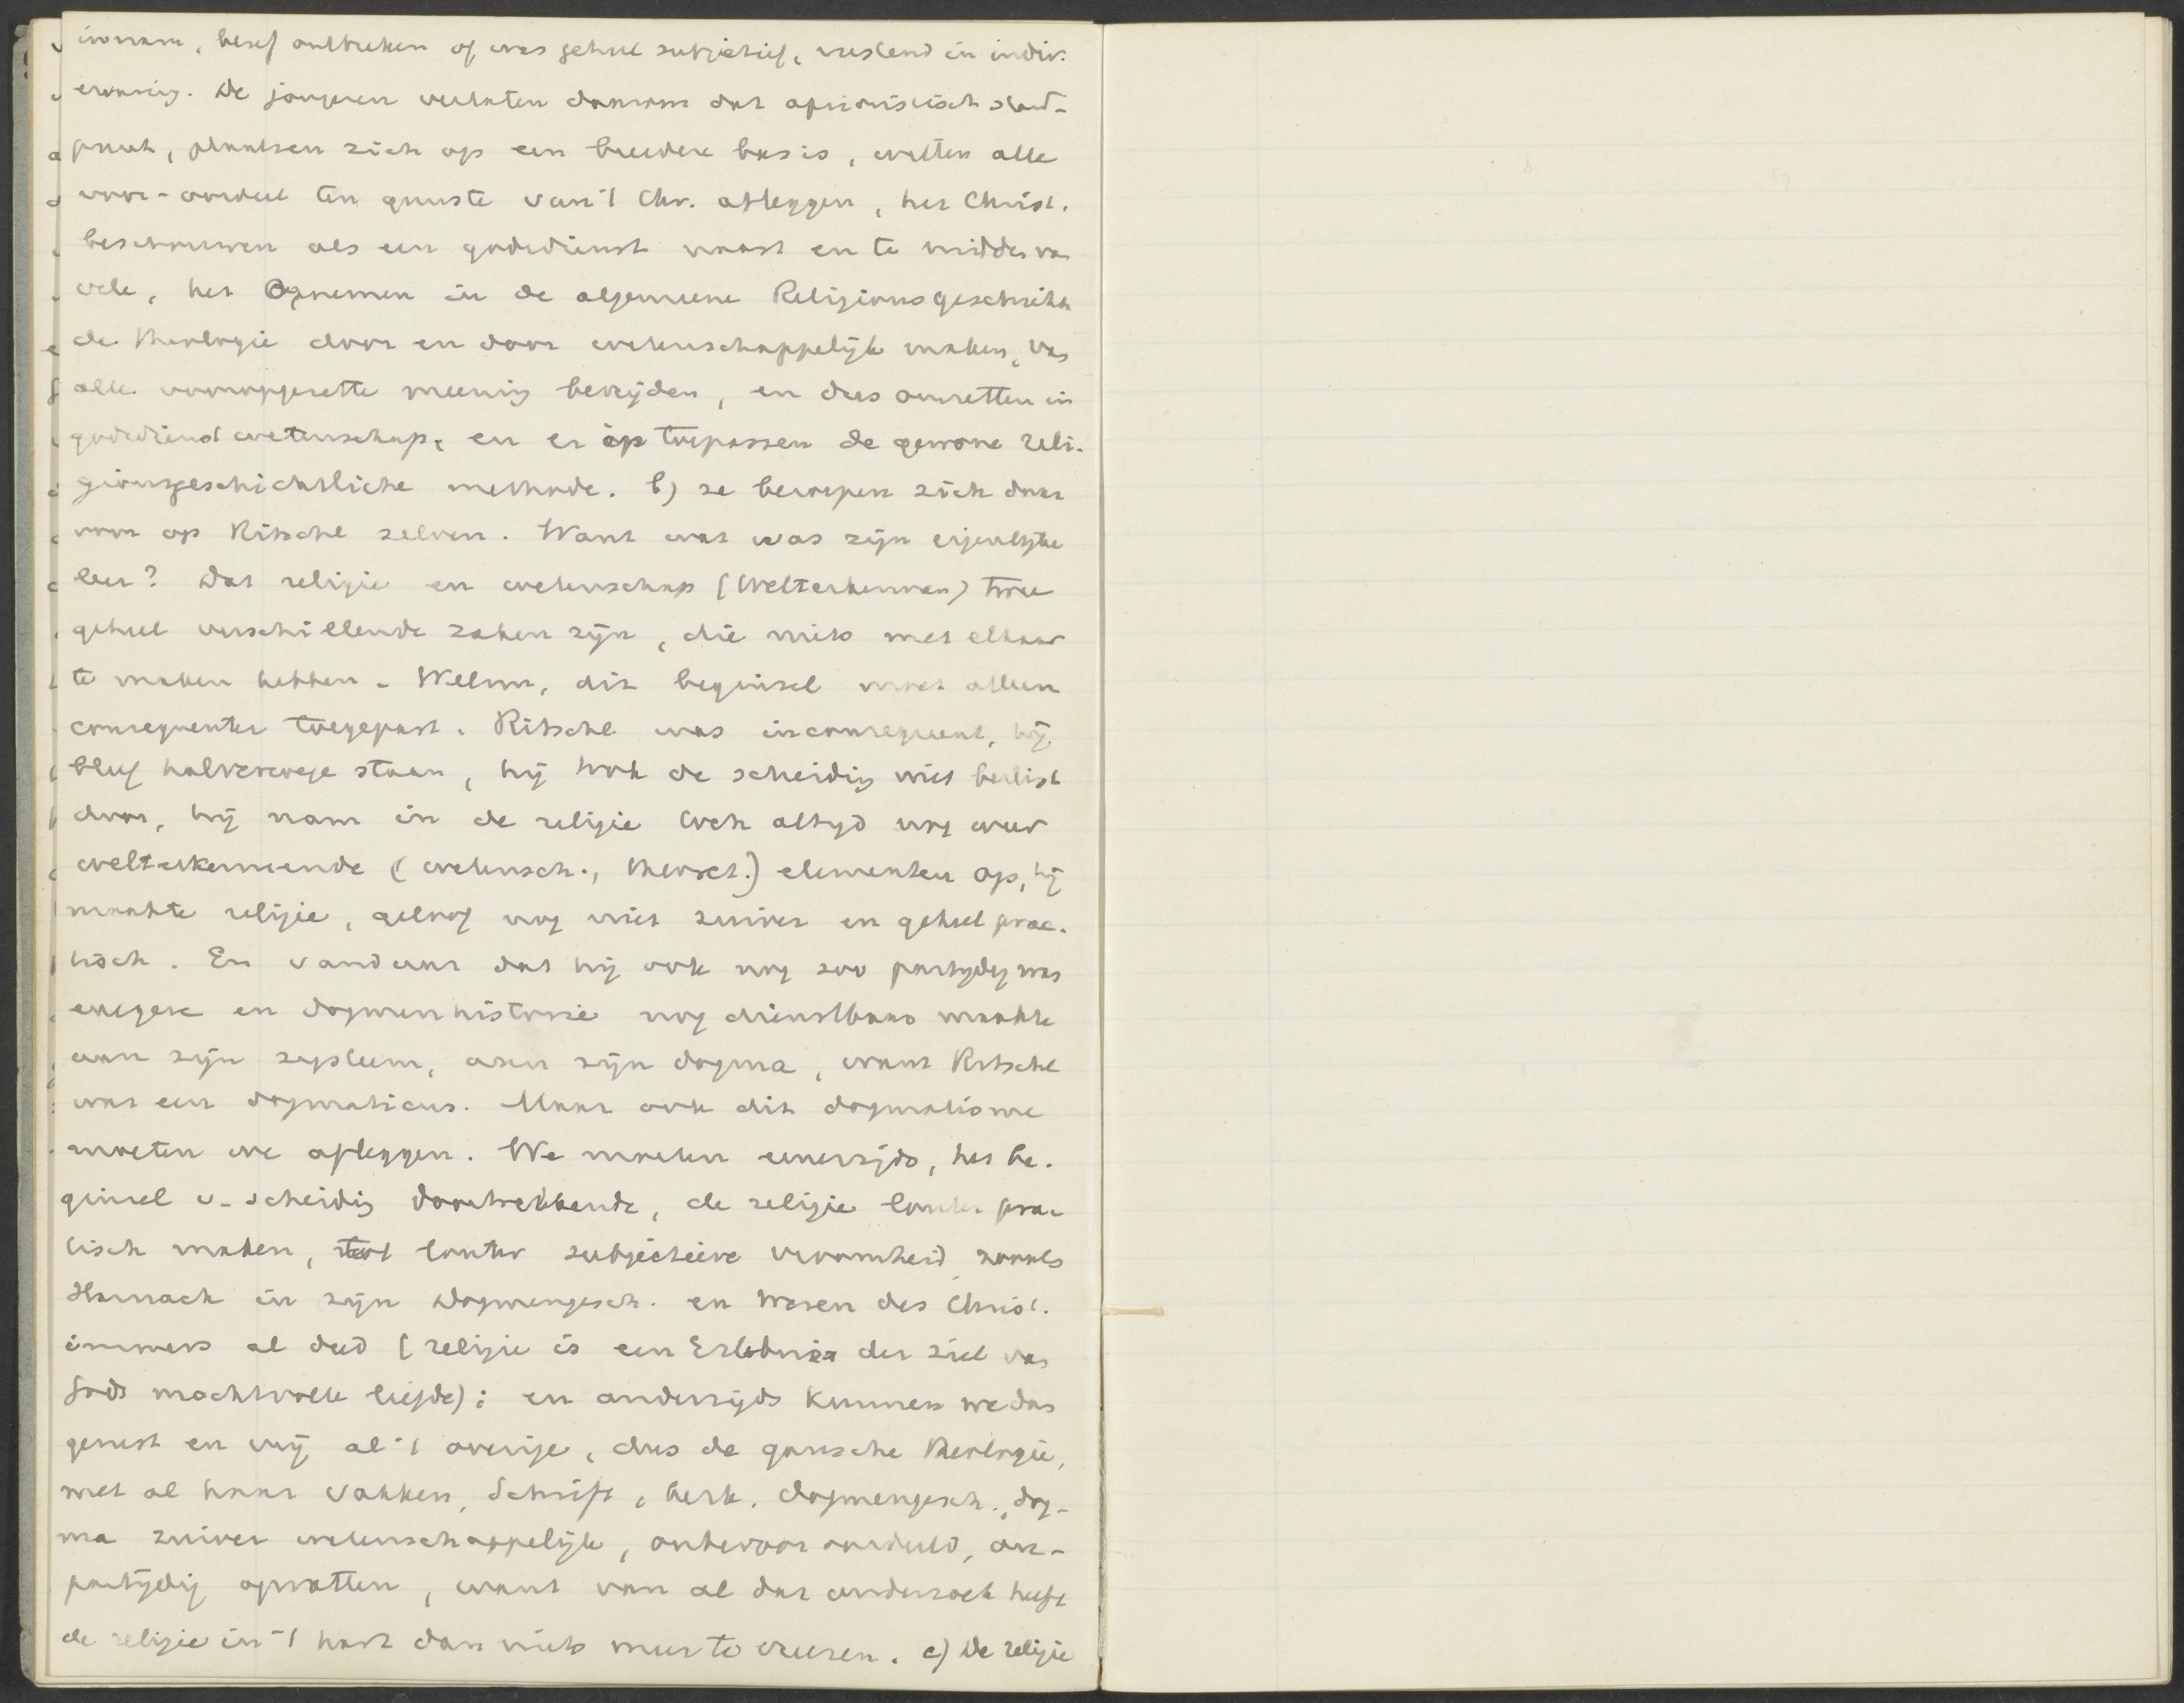 innam, bleef ontbreken of was geheel subjectief, rustend in indiv.
ervaring. De jongeren verlaten daarom dat aprioristisch stand-
punt, plaatsen zich op een breedere basis, willen alle
voor-oordeel ten gunste van 't Chr. afleggen, het Christ.
beschouwen als een godsdienst naast en te midden van
vele, het opnemen in de algemeene Religionsgeschichte
de theologie door en door wetenschappelijk maken, van
alle vooropgezette meening bevrijden, en dus omzetten in
godsdienstwetenschap, en er op toepassen de gewone reli-
gionsgeschichtliche methode. b) ze beroepen zich daar
voor op Ritschl zelven. Want wat was zijn eigenlijke
leer? Dat religie en wetenschap (Welterkennen) twee
geheel verschillende zaken zijn, die niets met elkaar
te maken hebben. Welnu, dit beginsel moet alleen
consequenter toegepast. Ritschl was inconsequent, hij
bleef halverwege staan, hij trok de scheiding niet beslist
door, hij nam in de religie toch altijd nog weer
welterkennende (wetensch., theoret.) elementen op, hij
maakte religie, geloof nog niet zuiver en geheel prac-
tisch. En vandaar dat hij ook nog zoo partijdig was
exegese en dogmenhistorie nog dienstbaar maakte
aan zijn systeem, aan zijn dogma, want Ritschl
was een dogmaticus. Maar ook dit dogmatisme
moeten we afleggen. We moeten eenerzijds, het be-
ginsel v. scheiding doortrekkende, de religie louter prac
tisch maken, tot louter subjectieve vroomheid zooals
Harnack in zijn Dogmengesch. en Wesen des Christ.
immers al deed (religie is een Erlebnis der ziel van
Gods machtvolle liefde); en anderzijds kunnen we dan
gerust en vrij al 't overige, dus de gansche theologie,
met al haar vakken, Schrift, kerk, dogmengesch., dog-
ma zuiver wetenschappelijk, onbevooroordeeld, on-
partijdig opvatten, want van al dat onderzoek heeft
de religie in 't hart dan niets meer te vreezen. c) De religie